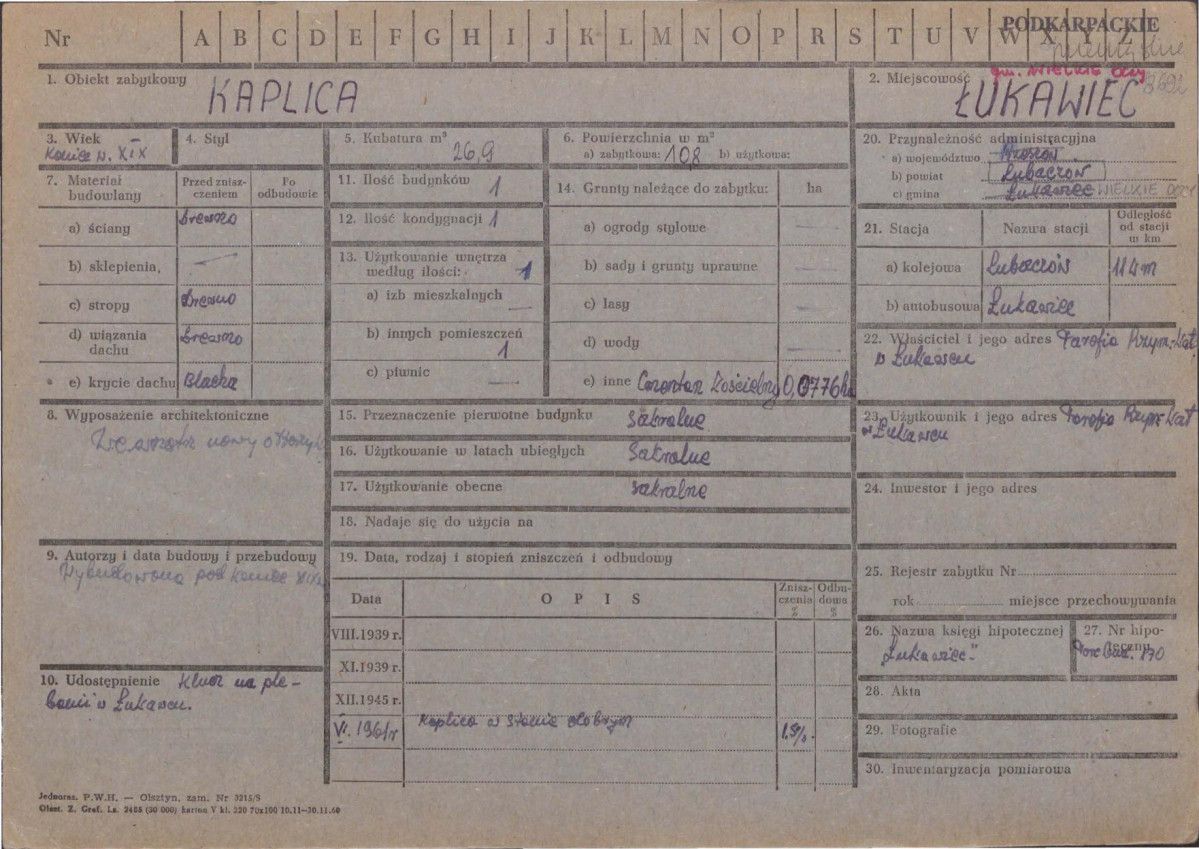 PODKARPACKIE
Nr A B C D E F G H I J K L M N O P R S T U V W X Y Z
nieistnie
3692
1. Obiekt zabytkowy
KAPLICA
gm. WIELKIE OCZY
2. Miejscowość
ŁUKAWIEC
3. Wiek
Koniec w. XIX
4. Styl
5. Kubatura m³
26,9
6. Powierzchnia w m²
a) zabytkowa: 108 b) użytkowa:
20. Przynależność administracyjna
a) województwo Rzeszów
b) powiat Lubaczów
c) gmina Łukawiec WIELKIE OCZY
7. Materiał budowlany
Przed zniszczeniem
Po odbudowie
a) ściany Drewno
b) sklepienia, —
c) stropy Drewno
d) wiązania dachu Drewno
e) krycie dachu Blacha
11. Ilość budynków 1
12. Ilość kondygnacji 1
13. Użytkowanie wnętrza według ilości: 1
a) izb mieszkalnych —
b) innych pomieszczeń 1
c) piwnic —
14. Grunty należące do zabytku: ha
a) ogrody stylowe —
b) sady i grunty uprawne —
c) lasy —
d) wody —
e) inne Cmentarz Kościelny 0,0776 ha
21. Stacja Nazwa stacji Odległość od stacji w km
a) kolejowa Lubaczów
b) autobusowa Łukawiec
22. Właściciel i jego adres Parafia Rzym-Kat
w Łukawcu
8. Wyposażenie architektoniczne
nowy
15. Przeznaczenie pierwotne budynku sakralne
16. Użytkowanie w latach ubiegłych sakralne
17. Użytkowanie obecne sakralne
18. Nadaje się do użycia na
23. Użytkownik i jego adres Parafia Rzym-Kat
w Łukawcu
24. Inwestor i jego adres
9. Autorzy i data budowy i przebudowy
Wybudowana pod koniec XIX w
19. Data, rodzaj i stopień zniszczeń i odbudowy
Data OPIS Zniszczenia % Odbudowa %
VIII.1939 r.
XI.1939 r.
XII.1945 r.
VI. 1961 r Kaplica w stanie dobrym 15%.
25. Rejestr zabytku Nr
rok miejsce przechowywania
26. Nazwa księgi hipotecznej
"Łukawiec"
27. Nr hipoteczny
170
10. Udostępnienie Klucz na ple-
banii w Łukawcu.
28. Akta
29. Fotografie
30. Inwentaryzacja pomiarowa
Jednoraz. P.W.H. — Olsztyn, zam. Nr 3215/S
Olszt. Z. Graf. Lz. 2488 (50 000) karton V kl. 220 70x100 10.11—30.11.60